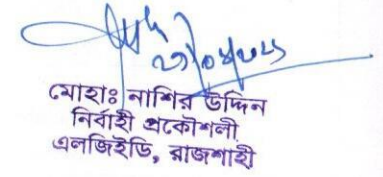 মোহাঃ নাশির উদ্দিন
নির্বাহী প্রকৌশলী
এলজিইডি, রাজশাহী